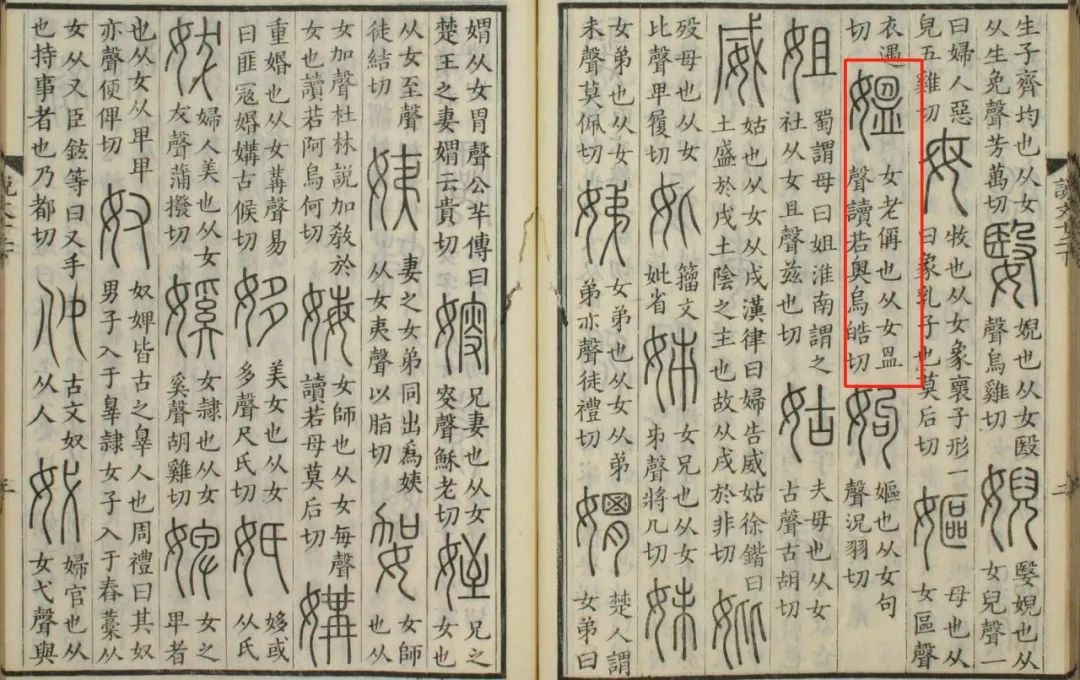 生子齊均也从女
从生免聲芳萬切
嫛
婗也从女殹
聲烏雞切
婗
嫛婗也从
女兒聲一
曰婦人惡
皃五雞切
母
牧也从女象褱子形一
曰象乳子也莫后切
嫗
母也从
女區聲
衣遇
切
媼
女老偁也从女𥁕
聲讀若奧烏皓切
姁
嫗也从女句
聲況羽切
姐
蜀謂母曰姐淮南謂之
社从女且聲茲也切
姑
夫母也从女
古聲古胡切
威
姑也从女从戌漢律曰婦告威姑徐鍇曰
土盛於戌土陰之主也故从戌於非切
妣
歿母也从女
比聲卑履切
𡚧
籒文
妣省
姊
女兄也从女
𠂔聲將几切
妹
女弟也从女
未聲莫佩切
娣
女弟也从女从弟
弟亦聲徒禮切
媦
楚人謂
女弟曰
媦从女胃聲公羊傳曰
楚王之妻媦云貴切
㛮
兄妻也从女
㛮聲穌老切
姪
兄之
女也
从女至聲
徒結切
姨
妻之女弟同出爲姨
从女夷聲以脂切
妿
女師
也从
女加聲杜林說加敎於
女也讀若阿烏何切
娒
女師也从女每聲
讀若母莫后切
媾
重婚也从女冓聲易
曰匪寇婚媾古候切
姼
美女也从女
多聲尺氏切
㚷
姼或
从氏
妭
婦人美也从女
犮聲蒲撥切
㜎
女隷也从女
奚聲胡雞切
婢
女之
卑者
也从女从卑卑
亦聲便俾切
奴
奴婢皆古之辠人也周禮曰其奴
男子入于辠隷女子入于舂藁从
女从又臣鉉等曰又手
也持事者也乃都切
㚢
古文奴
从人
㚤
婦官也从
女弋聲與